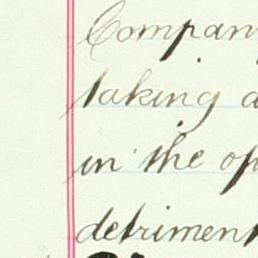 Compan
taking a
in the op
detriment